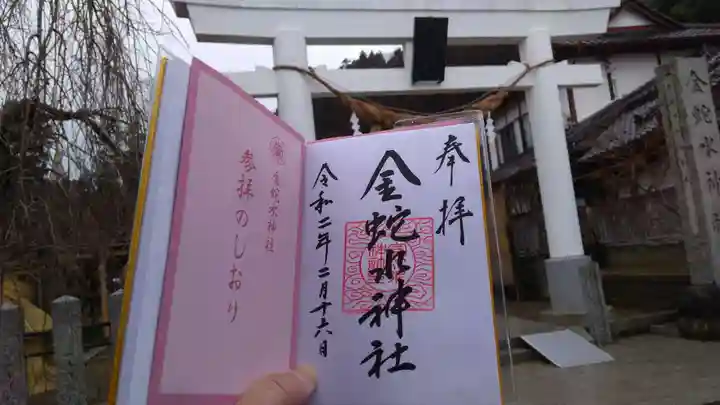 奉拝
金蛇水神社
令和二年二月十六日
金蛇水神社
参拝のしおり
金蛇水神